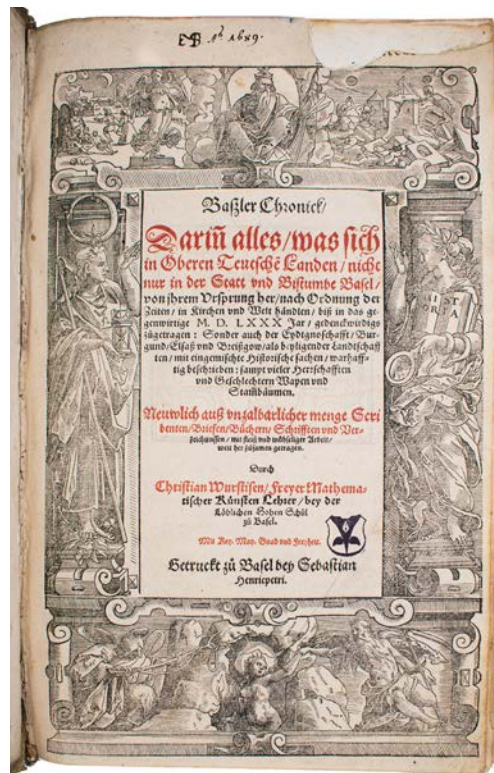 1689.
Baßler Chronick/
Dariñ alles/was sich
in Oberen Teutschẽ Landen/nicht
nur in der Statt vnd Bistumbe Basel/
von jhrem Vrsprung her/nach Ordnung der
Zeiten/in Kirchen vnd Welt händlen/biß in das ge-
genwirtige M. D. LXXX Jar/gedenckwirdigs
zůgetragen: Sonder auch der Eydtgnoschafft/Bur-
gund/Elsaß vnd Breißgow/als beyligender Landtschaff
ten/mit eingemischte Historische sachen/warhaff-
tig beschrieben: sampt vieler Herrschafften
vnd Geschlechtern Wapen vnd
Stam̃bäumen.
Neuwlich auß vnzalbarlicher menge Scri
benten/Brieffen/Büchern/Schrifften vnd Ver-
zeichnussen/mit fleiß vnd můhseliger Arbeit/
weit her zůsamen getragen.
Durch
Christian Wurstisen/Freyer Mathema-
tischer Künsten Lehrer/bey der
Löblichen Hohen Schůl
zů Basel.
Mit Key. May. Gnad vnd Freyheit.
Getruckt zů Basel bey Sebastian
Henricpetri.
HISTORIA